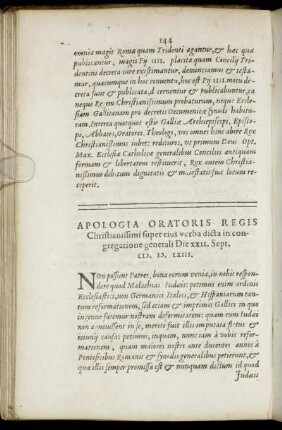 144
omnia magis Romæ quam Tridenti agantur, & hæc quæ
publicantur, magis Pij IIII. placita quam Concilij Tri-
dentini decreta iure existimantur, denunciamus & testa-
mur, quæcumque in hoc conventu, hoc est Pij IIII. motu de-
creta sunt & publicata, & decernentur & publicabuntur, ea
neque Regem Christianissimum probaturum, neque Eccle-
siam Gallicanam pro decretis Oecumenicæ synodi habitu-
ram. Interea quotquot estis Galliæ Archiepiscopi, Episco-
pi, Abbates, Oratores, Theologi, vos omnes hinc abire Rex
Christianissimus iubet: redituros, ut primum Deus Opt.
Max. Ecclesiæ Catholicæ generalibus Conciliis antiquam
formam & libertatem restituerit, Rex autem Christia-
nissimus debitum dignitatis & maiestatis suæ locum
receperit.
APOLOGIA ORATORIS REGIS
Christianissimi super eius verba dicta in con-
gregatione generali Die XXII. Sept.
CIↃ. IↃ. LXIII.
NOn possent Patres, bona eorum venia, in nobis respon-
dere quod Malachias Iudæis: petimus enim ordinis
Ecclesiastici, non Germanici Italici, & Hispaniarum tan-
tum reformationem, sed etiam & imprimis Gallici in quo
ingenue fatemur nostram deformitatem: quam cum Iudæi
non agnovissent in se, merito fuit illis imputata fletus &
ieiunij causa: petimus, inquam, nunc iam à vobis refor-
mationem, quam maiores nostri ante ducentos annos à
Pontificibus Romanis & synodis generalibus petierunt, &
quæ illis semper promissa est & nunquam dictum id quod
Iudæis